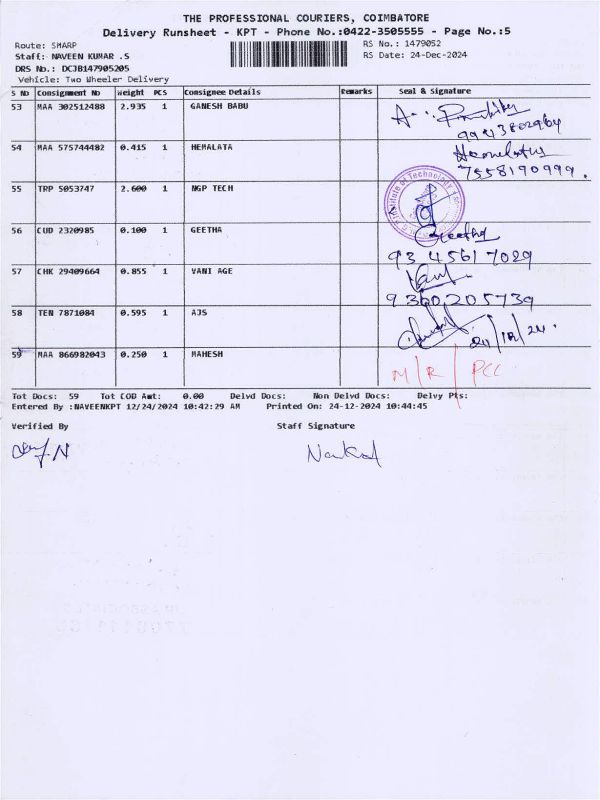 THE PROFESSIONAL COURIERS, COIMBATORE
Delivery Runsheet - KPT - Phone No.:0422-3505555 - Page No.:5
Route: SHARP
RS No.: 1479052
Staff: NAVEEN KUMAR .S
RS Date: 24-Dec-2024
DRS No.: DCJB147905205
Vehicle: Two Wheeler Delivery
S No Consignment No Weight PCS Consignee Details Remarks Seal & Signature
53 MAA 302512488 2.935 1 GANESH BABU
54 MAA 575744482 0.415 1 HEMALATA
Hemalatha
7558190999.
55 TRP 5053747 2.600 1 NGP TECH
Institute of Technology
56 CUD 2320985 0.100 1 GEETHA
Geetha
93 45617029
57 CHK 29409664 0.855 1 VANI AGE
9360205739
58 TEN 7871084 0.595 1 AJS
24/12/24.
59 MAA 866982043 0.250 1 MAHESH
M/R/PCC
Tot Docs: 59 Tot COD Amt: 0.00 Delvd Docs: Non Delvd Docs: Delvy Pts:
Entered By :NAVEENKPT 12/24/2024 10:42:29 AM Printed On: 24-12-2024 10:44:45
Verified By Staff Signature